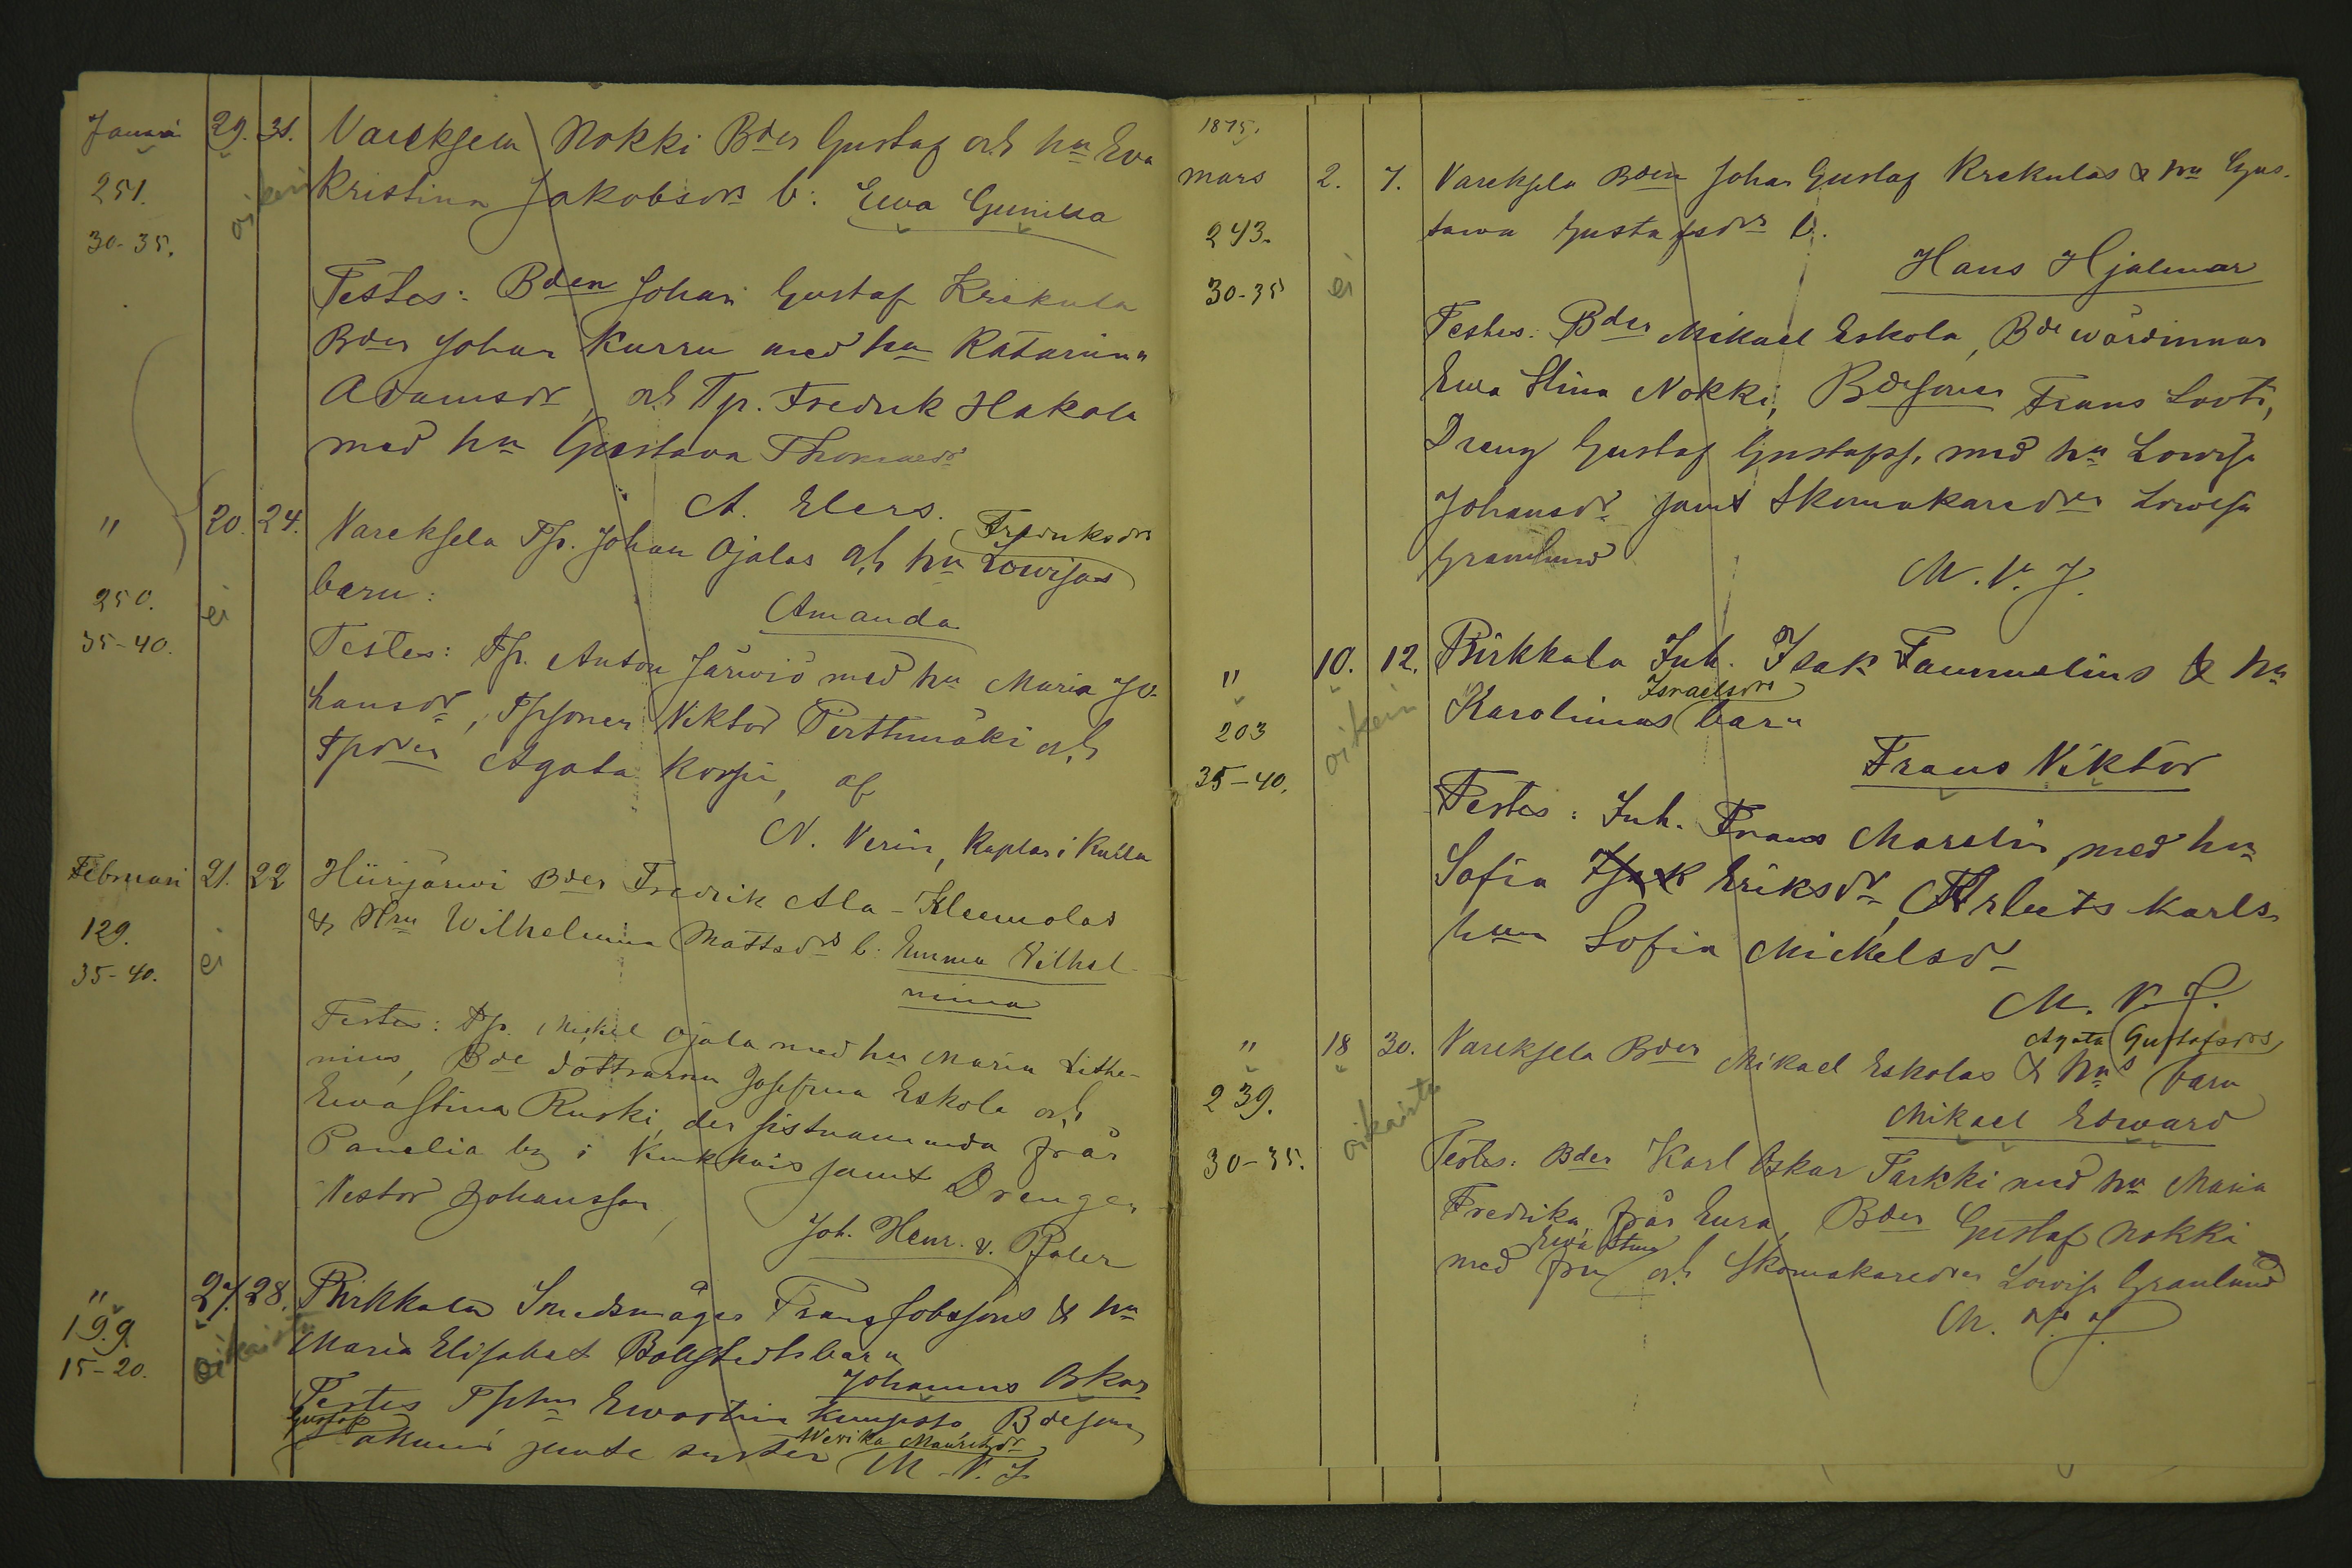 Januari 29. 31. Vareksela Nokki Bder Gustaf och hu Eva
251. Kristina Jakobsdrs b: Ewa Gunilla
oikein
30-35.
Testes: Bden Johan Gustaf Krekula
Bden Johan Kurru med hu Katarina
Adamsdr, och Tp. Fredrik Hakala
med hu Gustava Thomasdr
A. Elers.
" 20. 24. Vareksela Tp. Johan Ojalas och hu Lowisas Fredriksdrs
250. barn:
ei
Amanda
35-40.
Testes: Tp. Anton Järwiö med hu Maria Jo-
hansdr, Tpsonen Viktor Pirttimäki och
Tpdren Agata Korpi, af
N. Verin, Kaplan i Kulla
Februari 21. 22 Hiirijärwi Bder Fredrik Ala-Kleemolas
129. & Hru Wilhelmina Mattsdrs b: Emma Wilhel-
35-40. ei
mina
Testes: Tp. Mickel Ojala med hu Maria Lithe-
nius, Bde döttrarna Josefina Eskola och
Ewastina Ruski, den sistnämnda från
Panelia by i Kiukkais samt Drengen
Nestor Johansson,
Joh. Henr. v. Paler
" 27. 28. Pirkkala Smedsmågen Frans Jobssons & hu
199. Maria Elisabet Bollstedts barn
15-20. oikaistu
Johannes Oskar
Testes Tphu Ewastina Kumpsta Bdeson
Gustaf akunes jemte syster Werika Mauritzdr
M. V. J.
1875.
mars 2. 7. Vareksela Bden Johan Gustaf Krekulas & hu Gus-
243. tawa Gustafsdrs b.
Hans Hjalmar
30-35 ei
Testes: Bder Mikael Eskola, Bdewärdinnan
Ewa Stina Nokki, Bdesonen Frans Looti,
Dreng Gustaf Gustafss. med hu Lowisa
Johansdr samt Skomakaredren Lowisa
Granlund
M. V. J.
" 10. 12. Pirkkala Inh. Isak Fammelins & hu
203 Karolinas Israelsdrs barn
oikein
35-40.
Frans Viktor
Testes: Inh. Frans Marelin med hu
Sofia Eriksdr, Arbets Karls
hun Sofia Mickelsdr
M. V. J.
" 18 30. Vareksela Bder Mikael Eskolas & hus Agata Gustafsdrs barn
239.
Mikael Edward
oikaistu
30-35.
Testes: Bder Karl Oskar Tarkki med hu Maria
Fredrika från Eura, Bder Gustaf Nokki
med fru Ewa Stina och Skomakaredren Lowisa Granlund
M. V. J.